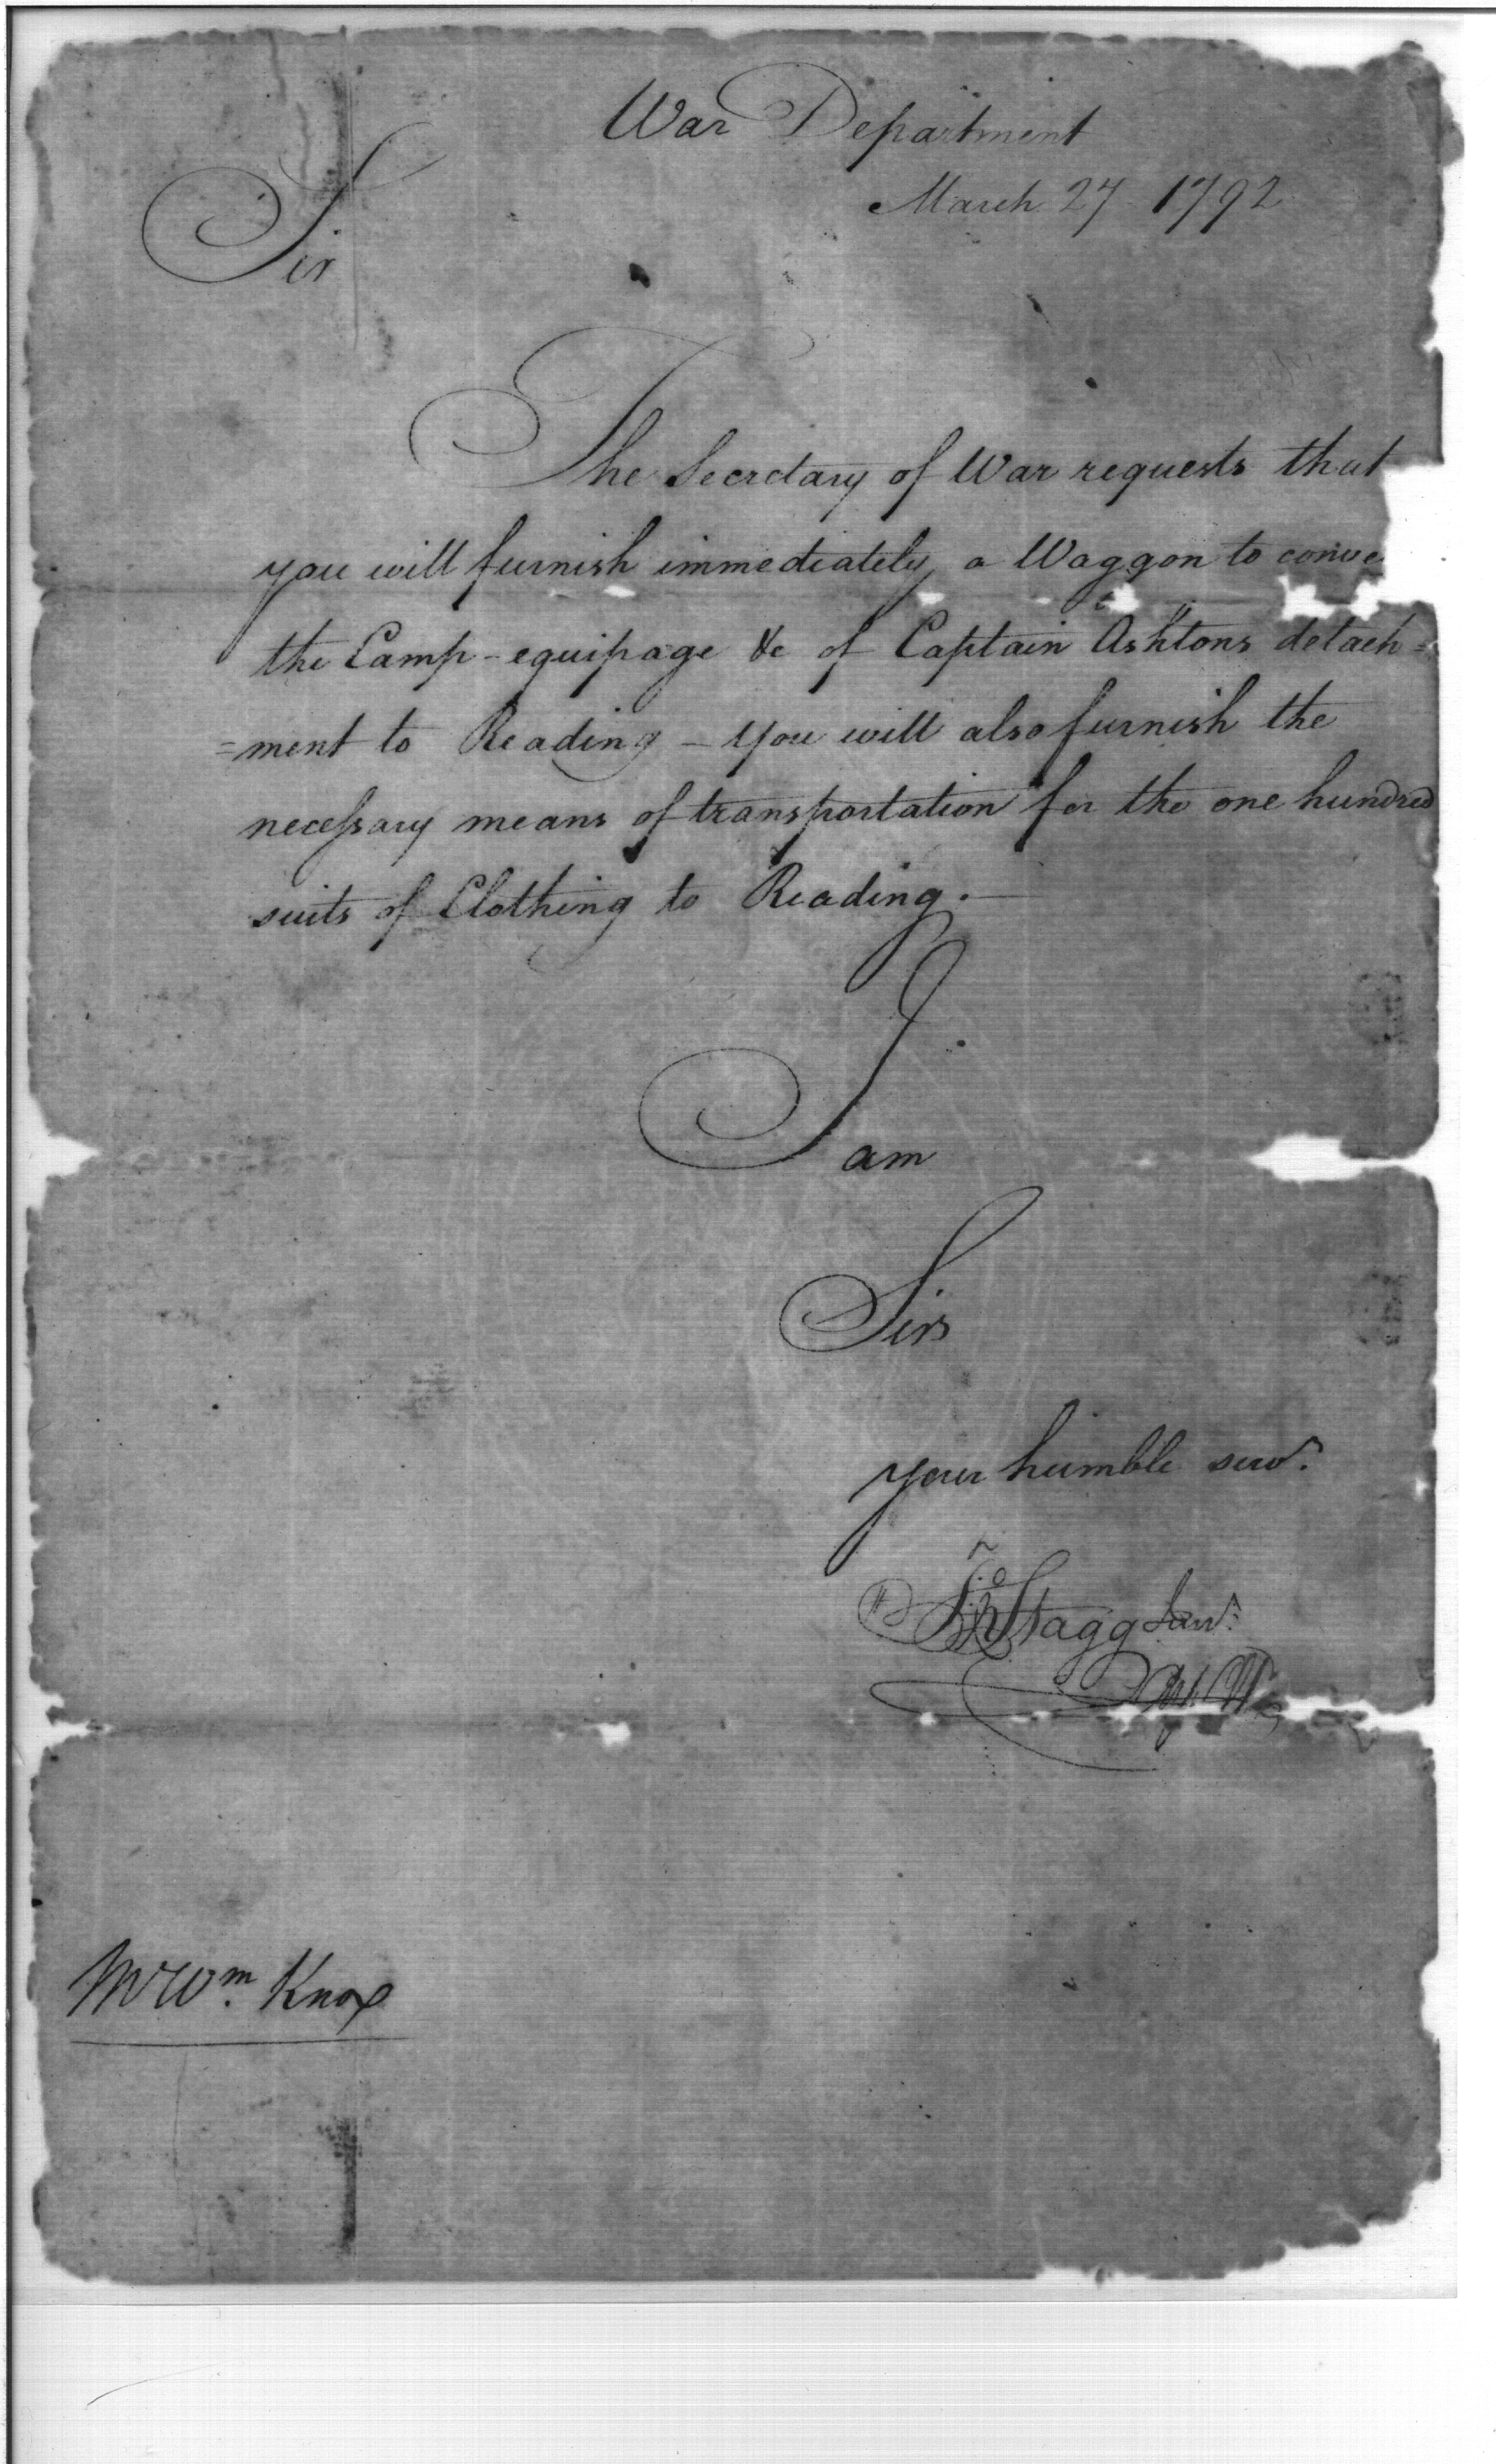 War Department
March 27 1792
Sir
The Secretary of War requests that
you will furnish immediately a Waggon to conve
the Camp-equipage &c of Captain Ashtons detach=
=ment to Reading - You will also furnish the
necessary means of transportation for the one hundred
suits of Clothing to Reading.—
I am
Sir
your humble servt.
Jno Stagg Junr.
Mr Wm. Knox